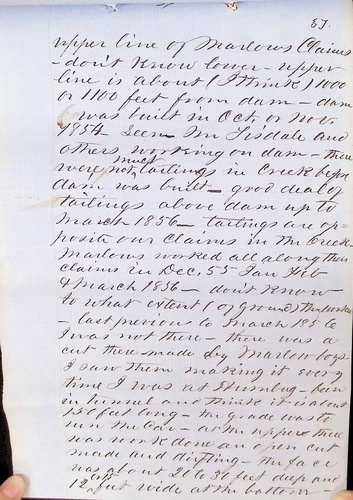 57.
upper line of Marlows Claims
- don't know lower - upper
line is about (I think) 1000
or 1100 feet from dam - dam
was built in Oct. or Nov.
1854. Seen Mr Tisdale and
others working on dam - there
were not much tailings in Creek before
dam was built - good deal of
tailings above dam up to
March 1856 - tailings are op=
posite our claims in the Creek
Marlows worked all along their
claims in Dec, 55 Jan Feb
& March 1856 - don't know
to what extent (of ground) they worked
- last previous to March 1856
I was not there - there was a
cut there made by Marlow boys
I saw them making it every
time I was at Humbug - been
in tunnel and think it is about
150 feet long - the grade was to
run the Car - at the upper there
was work done an open cut
made and drifting - the face
was about 20 to 30 feet deep and
12 feet wide at the bottom